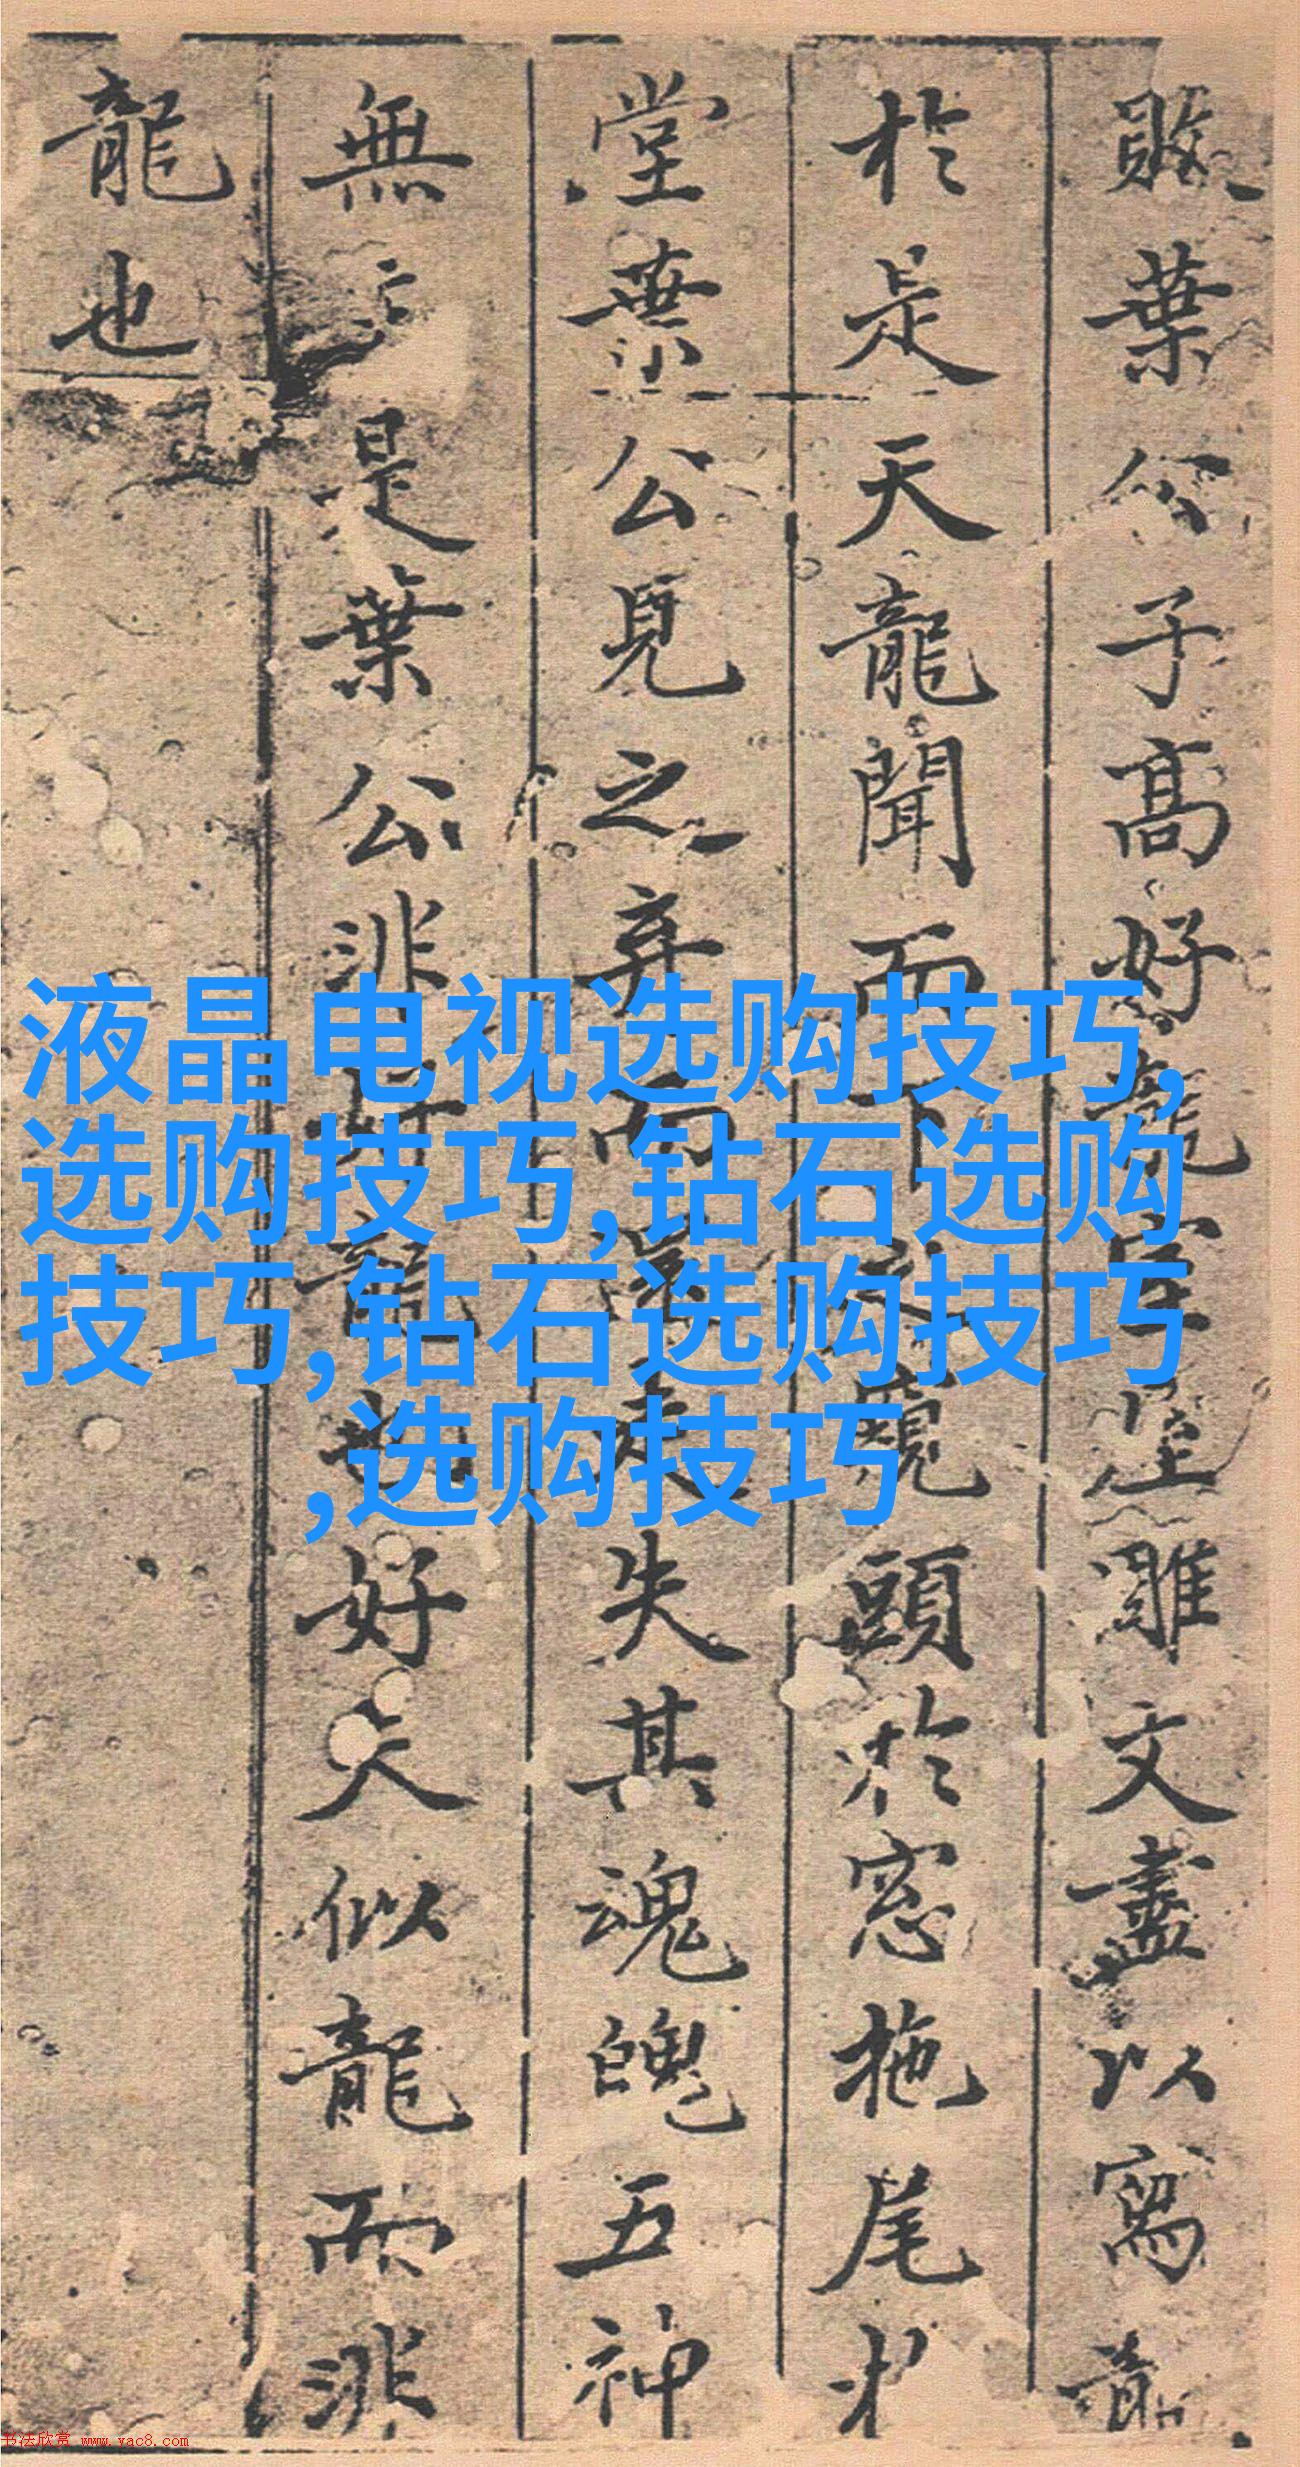 敗葉公子高好龍室屋雕文盡以寫龍
於是天龍聞而下之窺頭於窓拖尾於
堂葉公見之弃而還走失其魂魄五神
無主是葉公非好龍也好夫似龍而非
龍也
液晶电视选购技巧,
选购技巧,钻石选购
技巧,钻石选购技巧
,选购技巧
书法欣赏 www.yac8.com